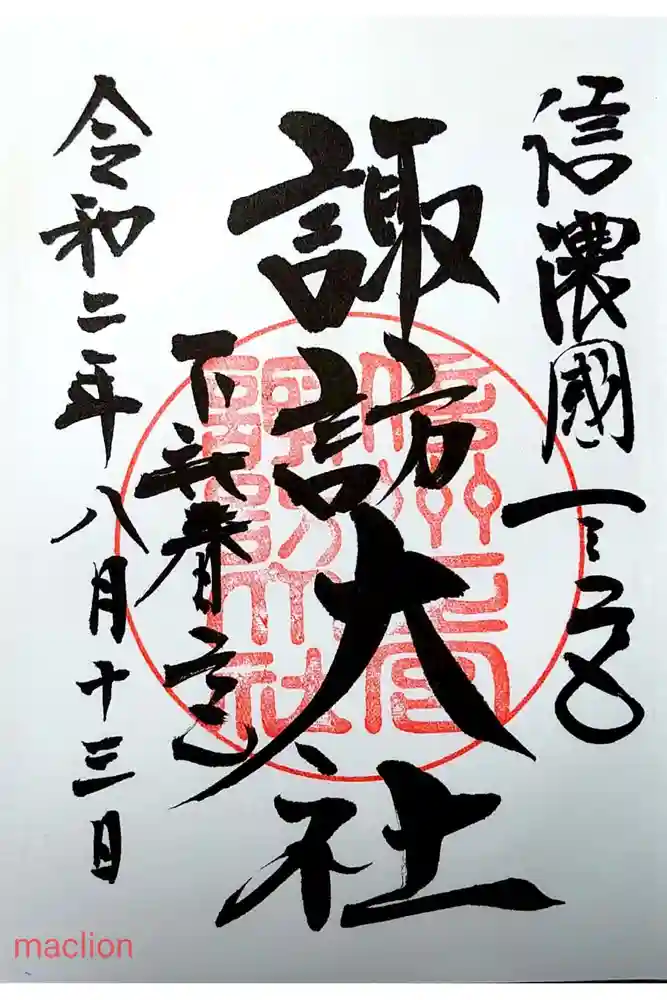 信濃國一之宮
諏訪大社
下社春宮
令和二年八月十三日
maclion